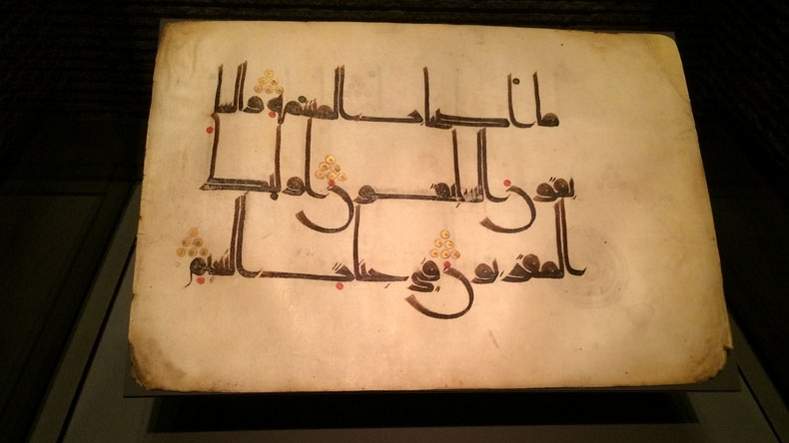 ما اصحاب المشمة والسا
بقون السابقون اولئك
المقربون في جنات النعيم